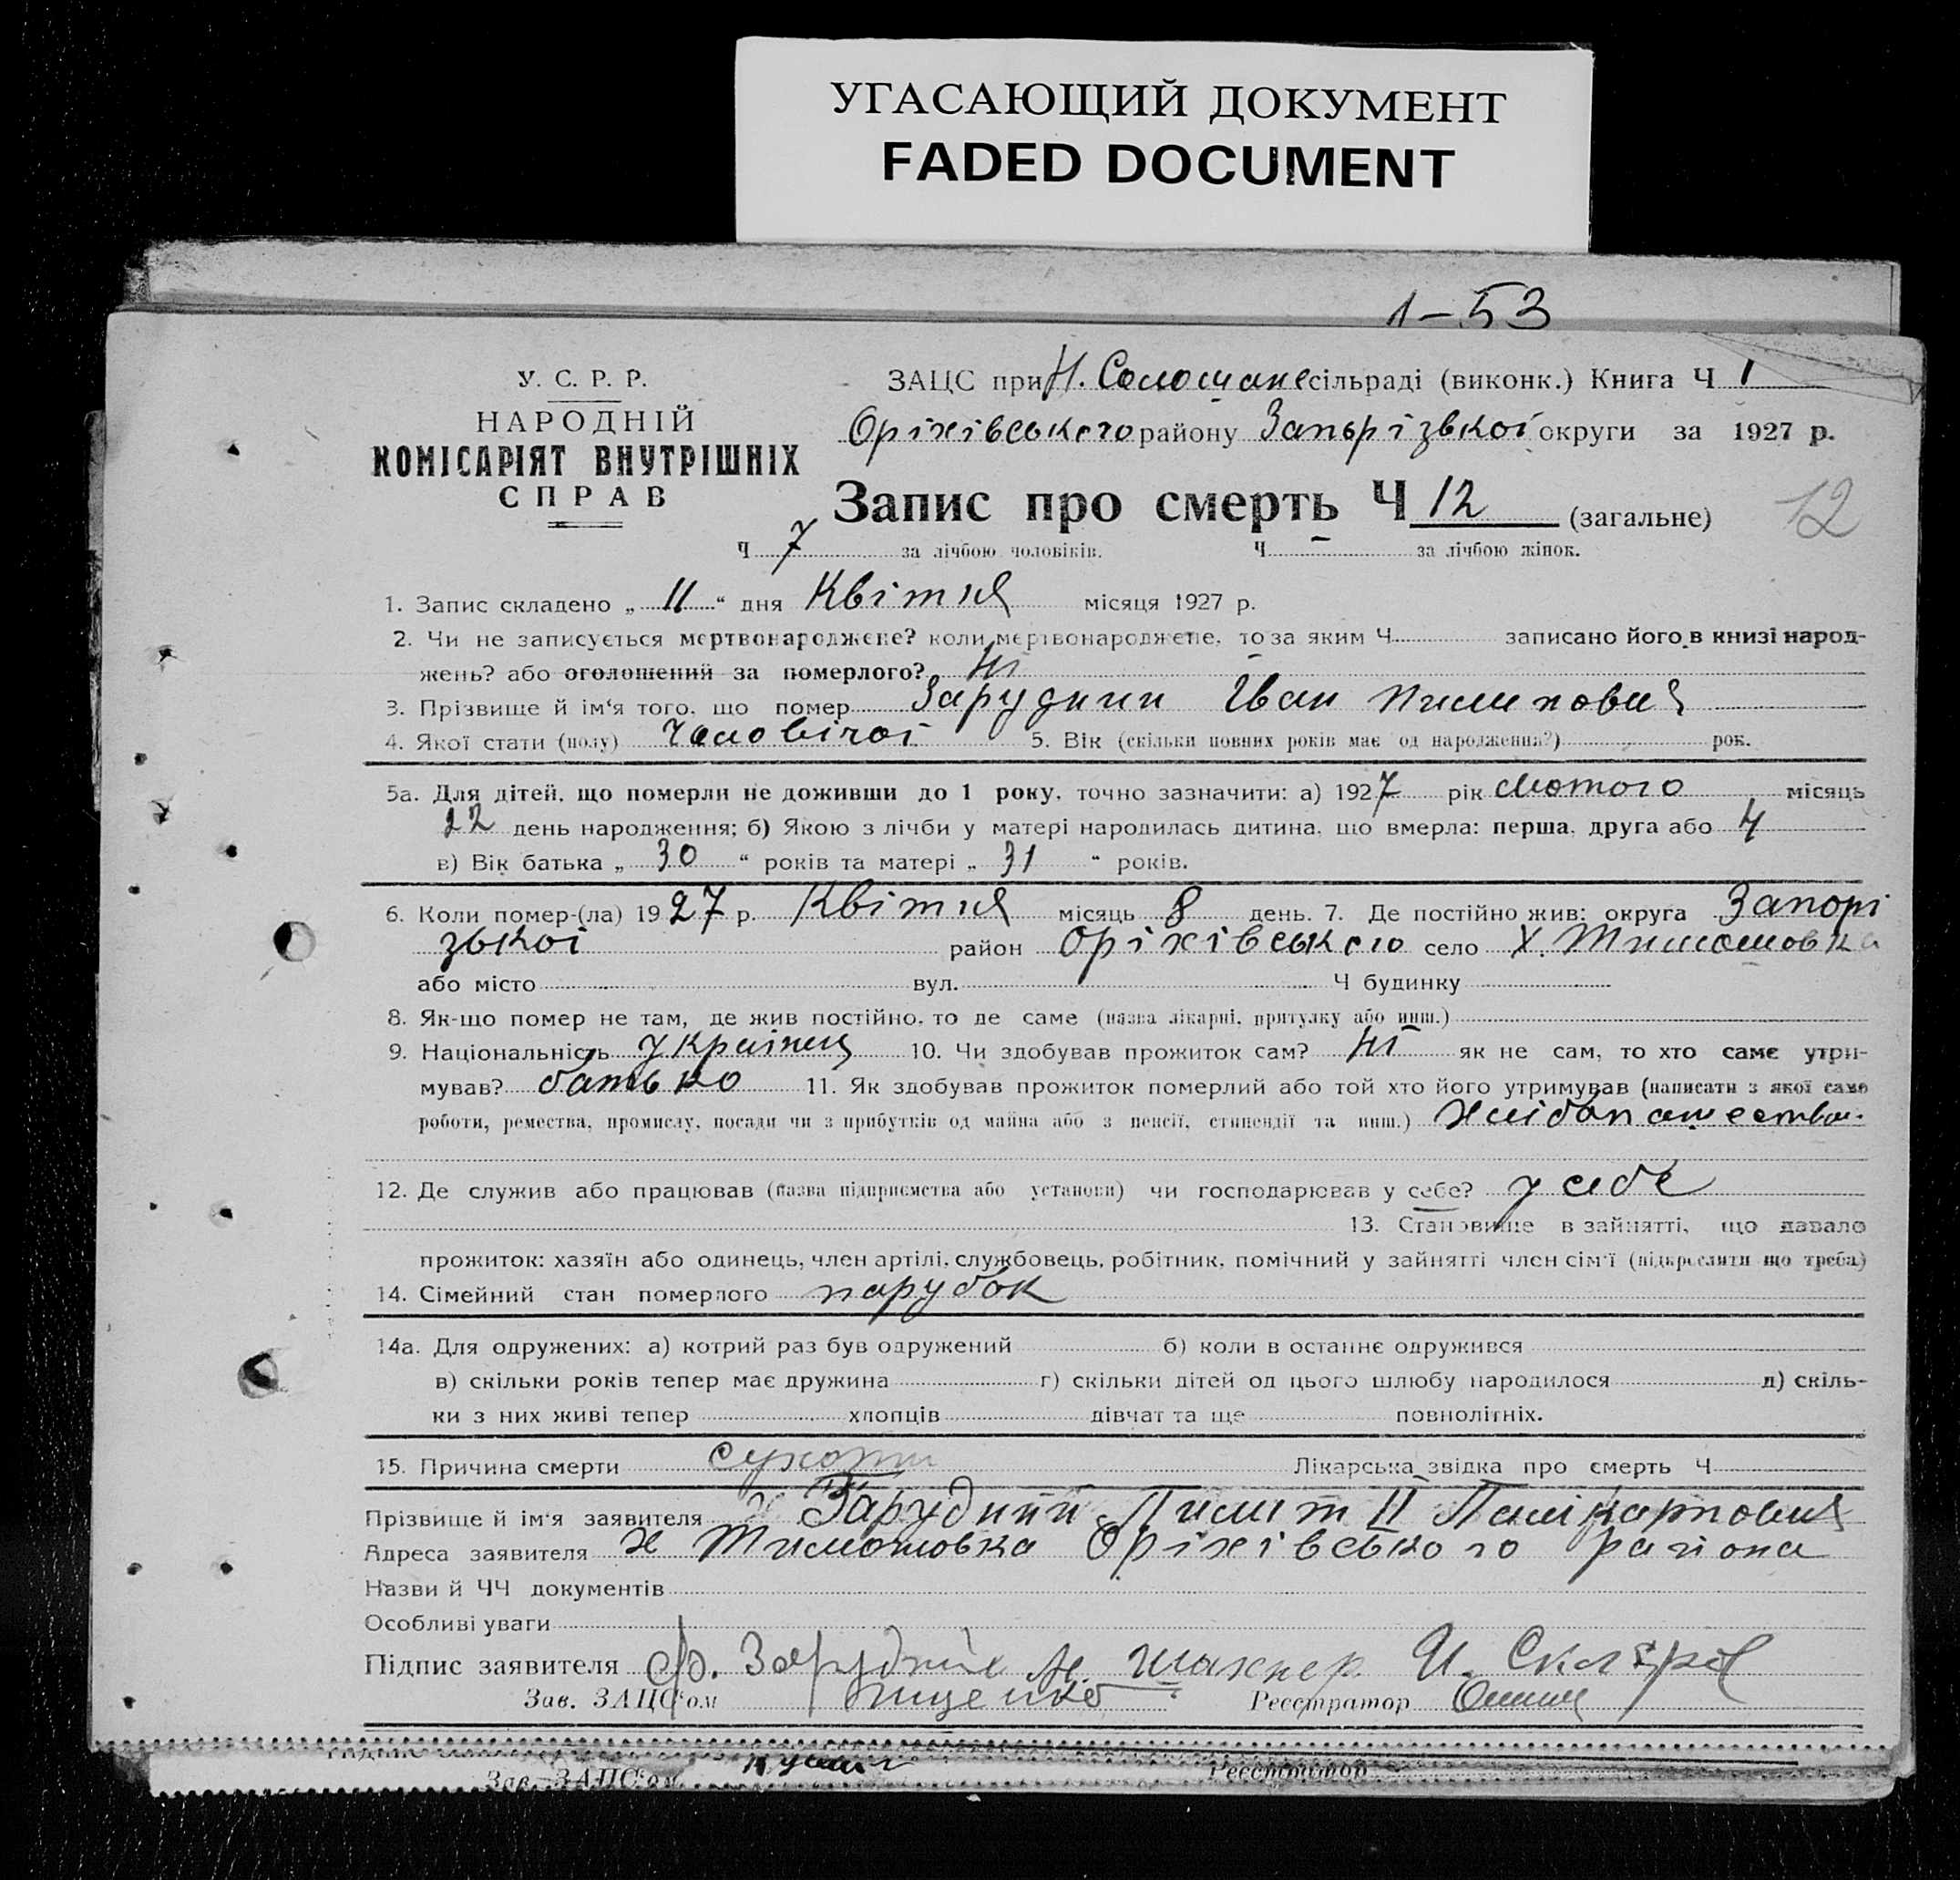 УГАСАЮЩИЙ ДОКУМЕНТ
FADED DOCUMENT
1-53
У. С. Р. Р.
НАРОДНІЙ
КОМІСАРІЯТ ВНУТРІШНІХ
СПРАВ
ЗАЦС при Н. сільраді (виконк.) Книга Ч 1
Оріхівського району Запорізької округи за 1927 р.
Запис про смерть Ч 12 (загальне) 12
Ч 7 за лічбою чоловіків. Ч – за лічбою жінок.
1. Запис складено „ 11 “ дня Квітня місяця 1927 р.
2. Чи не записується мертвонароджене? коли мертвонароджене, то за яким Ч записано його в книзі народ-
жень? або оголошений за померлого? Ні
3. Прізвище й ім‘я того, що помер Зарудний Іван Пилипович
4. Якої стати (полу) Чоловічої 5. Вік (скільки повних років має од народження?) рок.
5а. Для дітей, що померли не доживши до 1 року, точно зазначити: а) 1927 рік Лютого місяць
22 день народження; б) Якою з лічби у матері народилась дитина, що вмерла: перша, друга або 4
в) Вік батька „ 30 “ років та матері „ 31 “ років.
6. Коли помер-(ла) 1927 р. Квітня місяць 8 день. 7. Де постійно жив: округа Запорі
зької район Оріхівського село Х. Тимошовка
або місто вул. Ч будинку
8. Як-що помер не там, де жив постійно, то де саме (назва лікарні, притулку або инш.)
9. Національність Українец 10. Чи здобував прожиток сам? Ні як не сам, то хто саме утри-
мував? батько 11. Як здобував прожиток померлий або той хто його утримував (написати з якої саме
роботи, ремества, промислу, посади чи з прибутків од майна або з пенсії, стипендії та инш.) Хлібопашество.
12. Де служив або працював (назва підприємства або установи) чи господарював у себе? у себе
13. Становище в зайнятті, що давало
прожиток: хазяїн або одинець, член артілі, службовець, робітник, помічний у зайнятті член сім‘ї (підкреслити що треба)
14. Сімейний стан померлого парубок
14а. Для одружених: а) котрий раз був одружений б) коли в останнє одружився
в) скільки років тепер має дружина г) скільки дітей од цього шлюбу народилося д) скіль-
ки з них живі тепер хлопців дівчат та ще повнолітніх.
15. Причина смерти Сухоти Лікарська звідка про смерть Ч
Прізвище й ім‘я заявителя Зарудний
Адреса заявителя х Тимошовка Оріхівського района
Назви й ЧЧ документів
Особливі уваги
Підпис заявителя Ф. И. Скляров
Зав. ЗАЦС‘ом Реєстратор
Зав. ЗАЦС‘ом Реєстратор